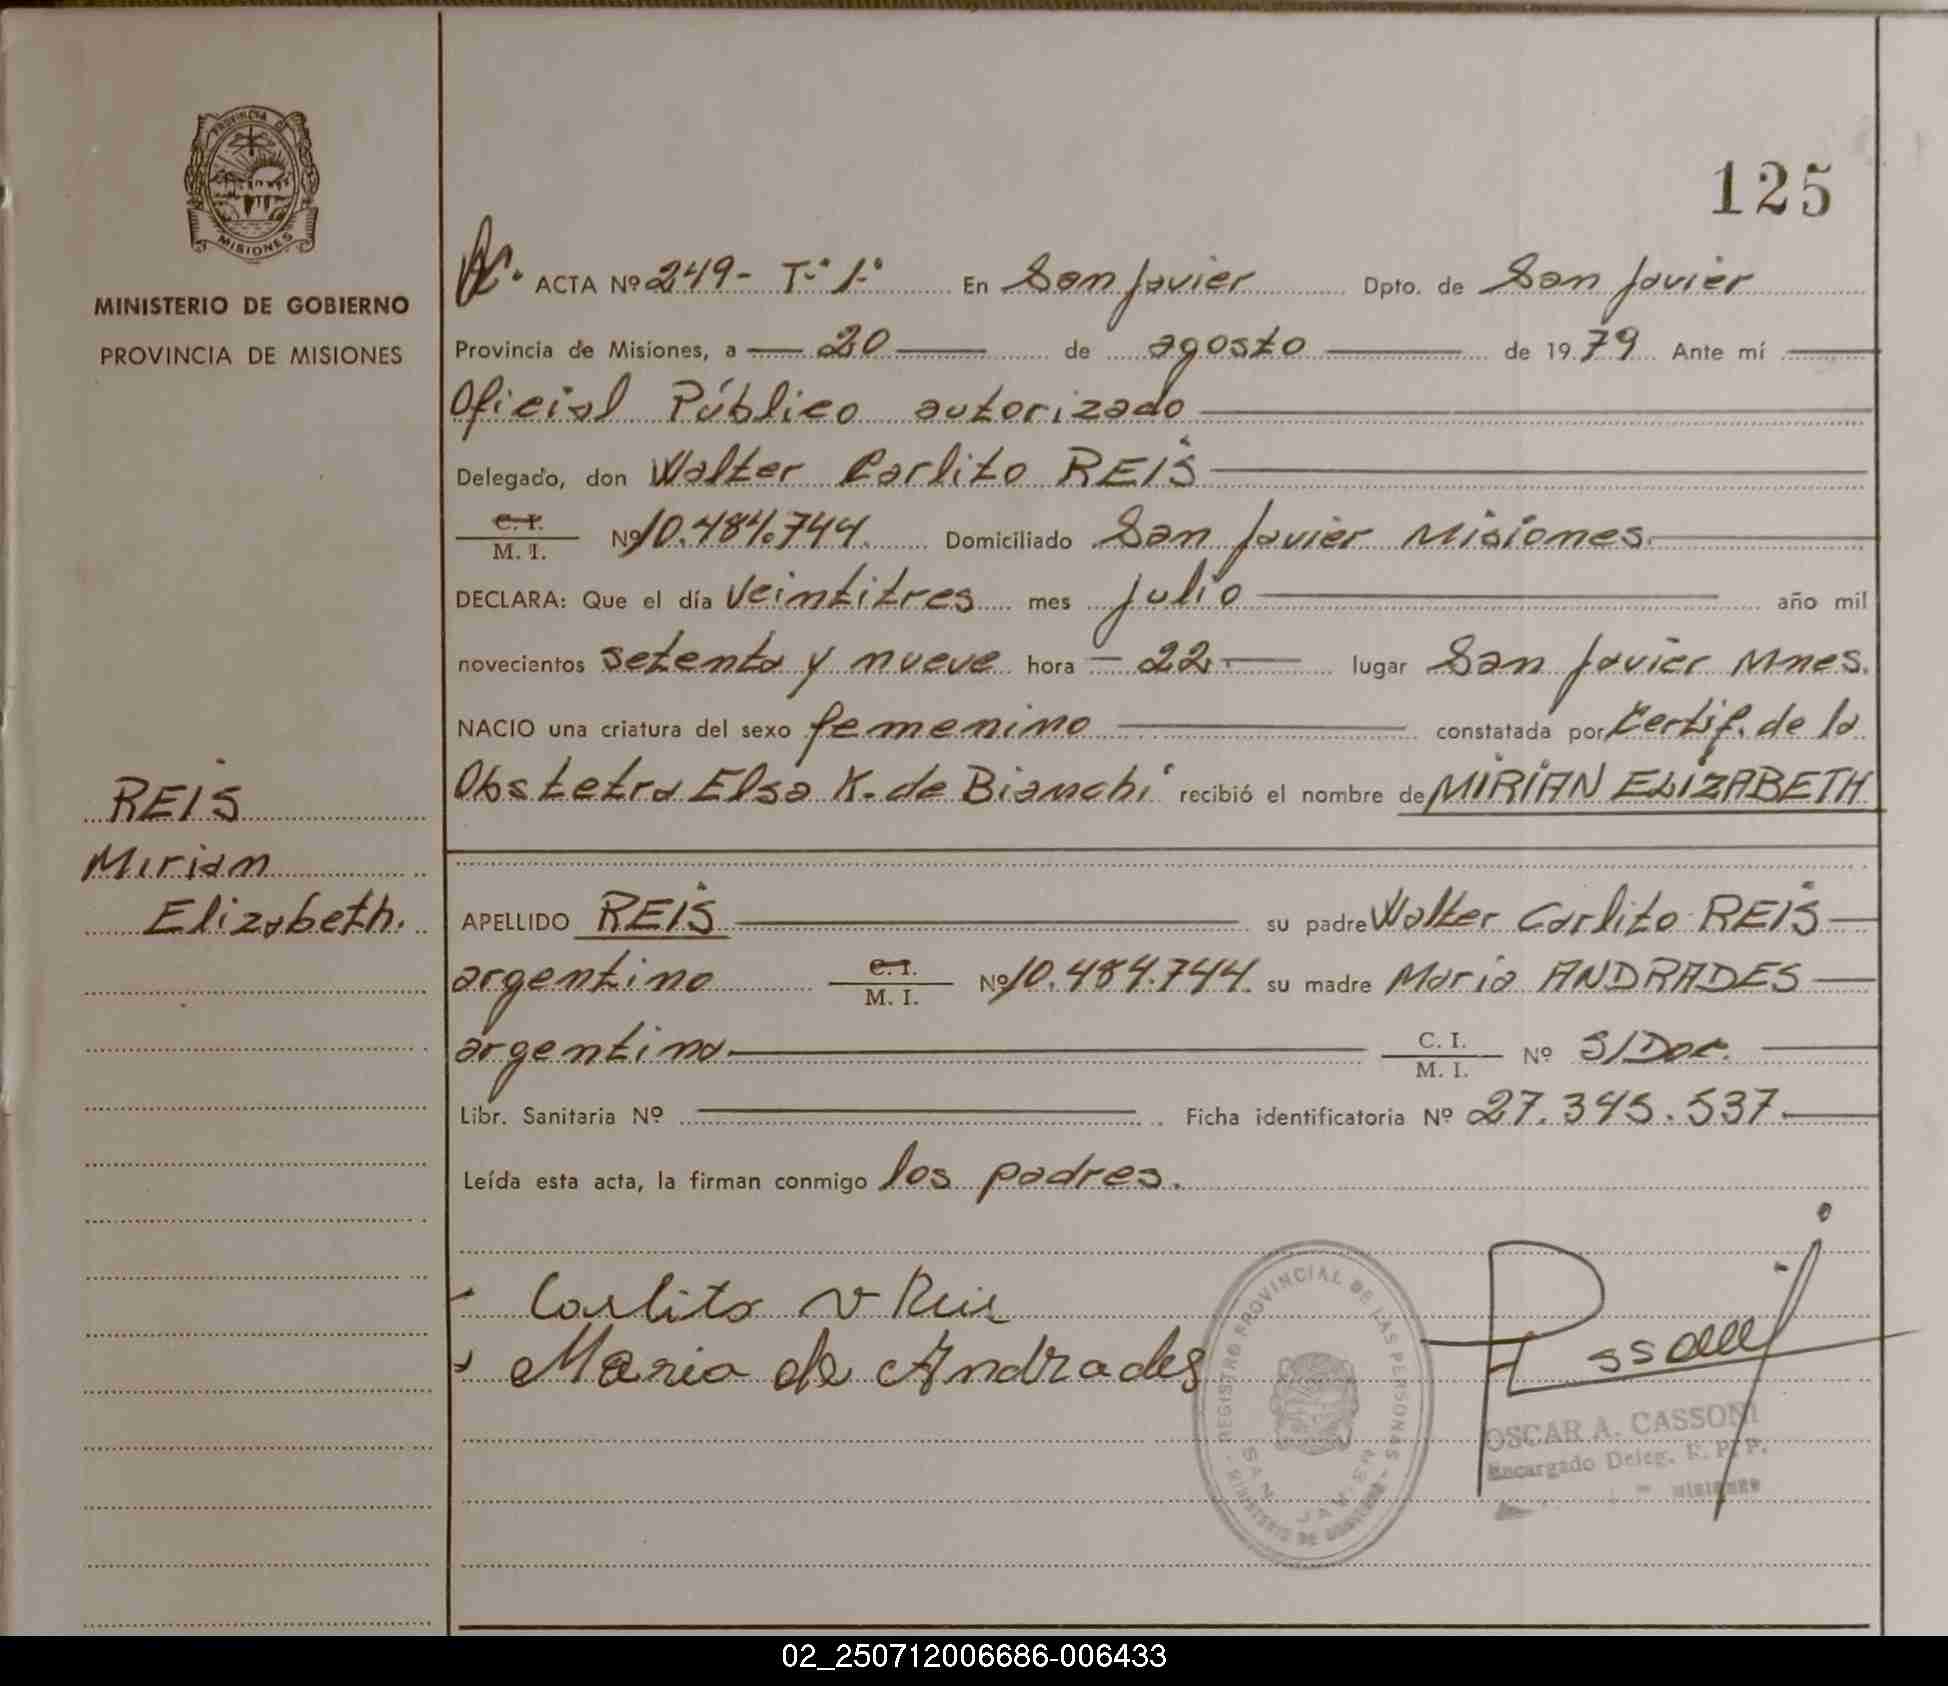 PROVINCIA DE
MISIONES
MINISTERIO DE GOBIERNO
PROVINCIA DE MISIONES
REIS
Mirian
Elizabeth.
125
ACTA Nº 249- Tº 1º En San Javier Dpto. de San Javier
Provincia de Misiones, a 20 de agosto de 1979 Ante mí
Oficial Público autorizado
Delegado, don Walter Carlito REIS
C. I.
M. I. Nº 10.484.744. Domiciliado San Javier Misiones.
DECLARA: Que el día Veintitres mes julio año mil
novecientos setenta y nueve hora - 22 - lugar San Javier Mnes.
NACIO una criatura del sexo femenino constatada por Certif. de la
Obstetra Elsa K. de Bianchi recibió el nombre de MIRIAN ELIZABETH
APELLIDO REIS su padre Walter Carlito REIS
argentino C. I.
M. I. Nº 10.484.744. su madre Maria ANDRADES
argentina C. I.
M. I. Nº S/Doc.
Libr. Sanitaria Nº Ficha identificatoria Nº 27.345.537
Leída esta acta, la firman conmigo los padres.
Carlito v Reis
Maria de Andrades
REGISTRO PROVINCIAL DE LAS PERSONAS
SAN JAVIER
MINISTERIO DE GOBIERNO
OSCAR A. CASSONI
Encargado Deleg. R. P. P.
MISIONES
02_250712006686-006433